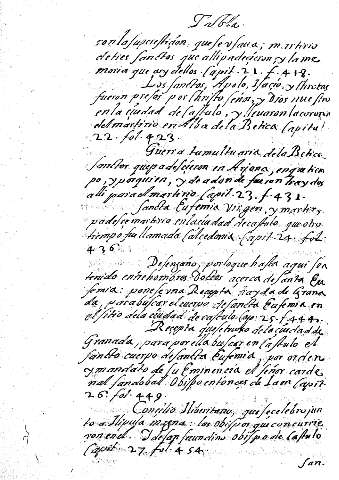 Tabla.
con la superstiçion que se usaua; martirio
de tres sanctos que alli padeçieron; y la me
moria que ay dellos Capit. 21. f. 418.
Los sanctos, Apolo, Isaçio, y
fueron presos por Christo señor, y Dios nuestro
en la ciudad de Castulo, y lleuaron la corona
del martirio en Alba de la Betica Capitu
22. fol. 423.
Guerra tumultuaria de la Betica.
sanctos que padeçieron en Arjona, en que tiem
po, y porque; y de adonde fueron traydos
alli para el martirio, Capit. 23. f. 431.
Sancta Eufemia Virgen, y martyr
padesce martirio en la ciudad de Castulo que otro
tiempo fue llamada Calcedonia. Capit. 24. fol.
436.
Desengaño, por lo que hasta aqui son
tenido entre hombres Doctos acerca de Santa Eu
femia: ponese una Recepta trayda de Grana
da, para buscar el cuerpo de Sancta Eufemia en
el sitio de la ciudad de Castulo Cap. 25. f. 444.
Recepta que se truxo de la ciudad de
Granada, para por ella buscar en Castulo el
sancto cuerpo de Sancta Eufemia, por orden
y mandato de su Eminencia el señor carde
nal sandobal Obispo entonces de Iaen Capit.
26. fol. 449.
Concilio Iliberitano, que se celebro jun
to a Ilipula magna: los obispos que concurrie
ron en el. San secundino obispo de Castulo
Capit. 27. fol. 454.
San.